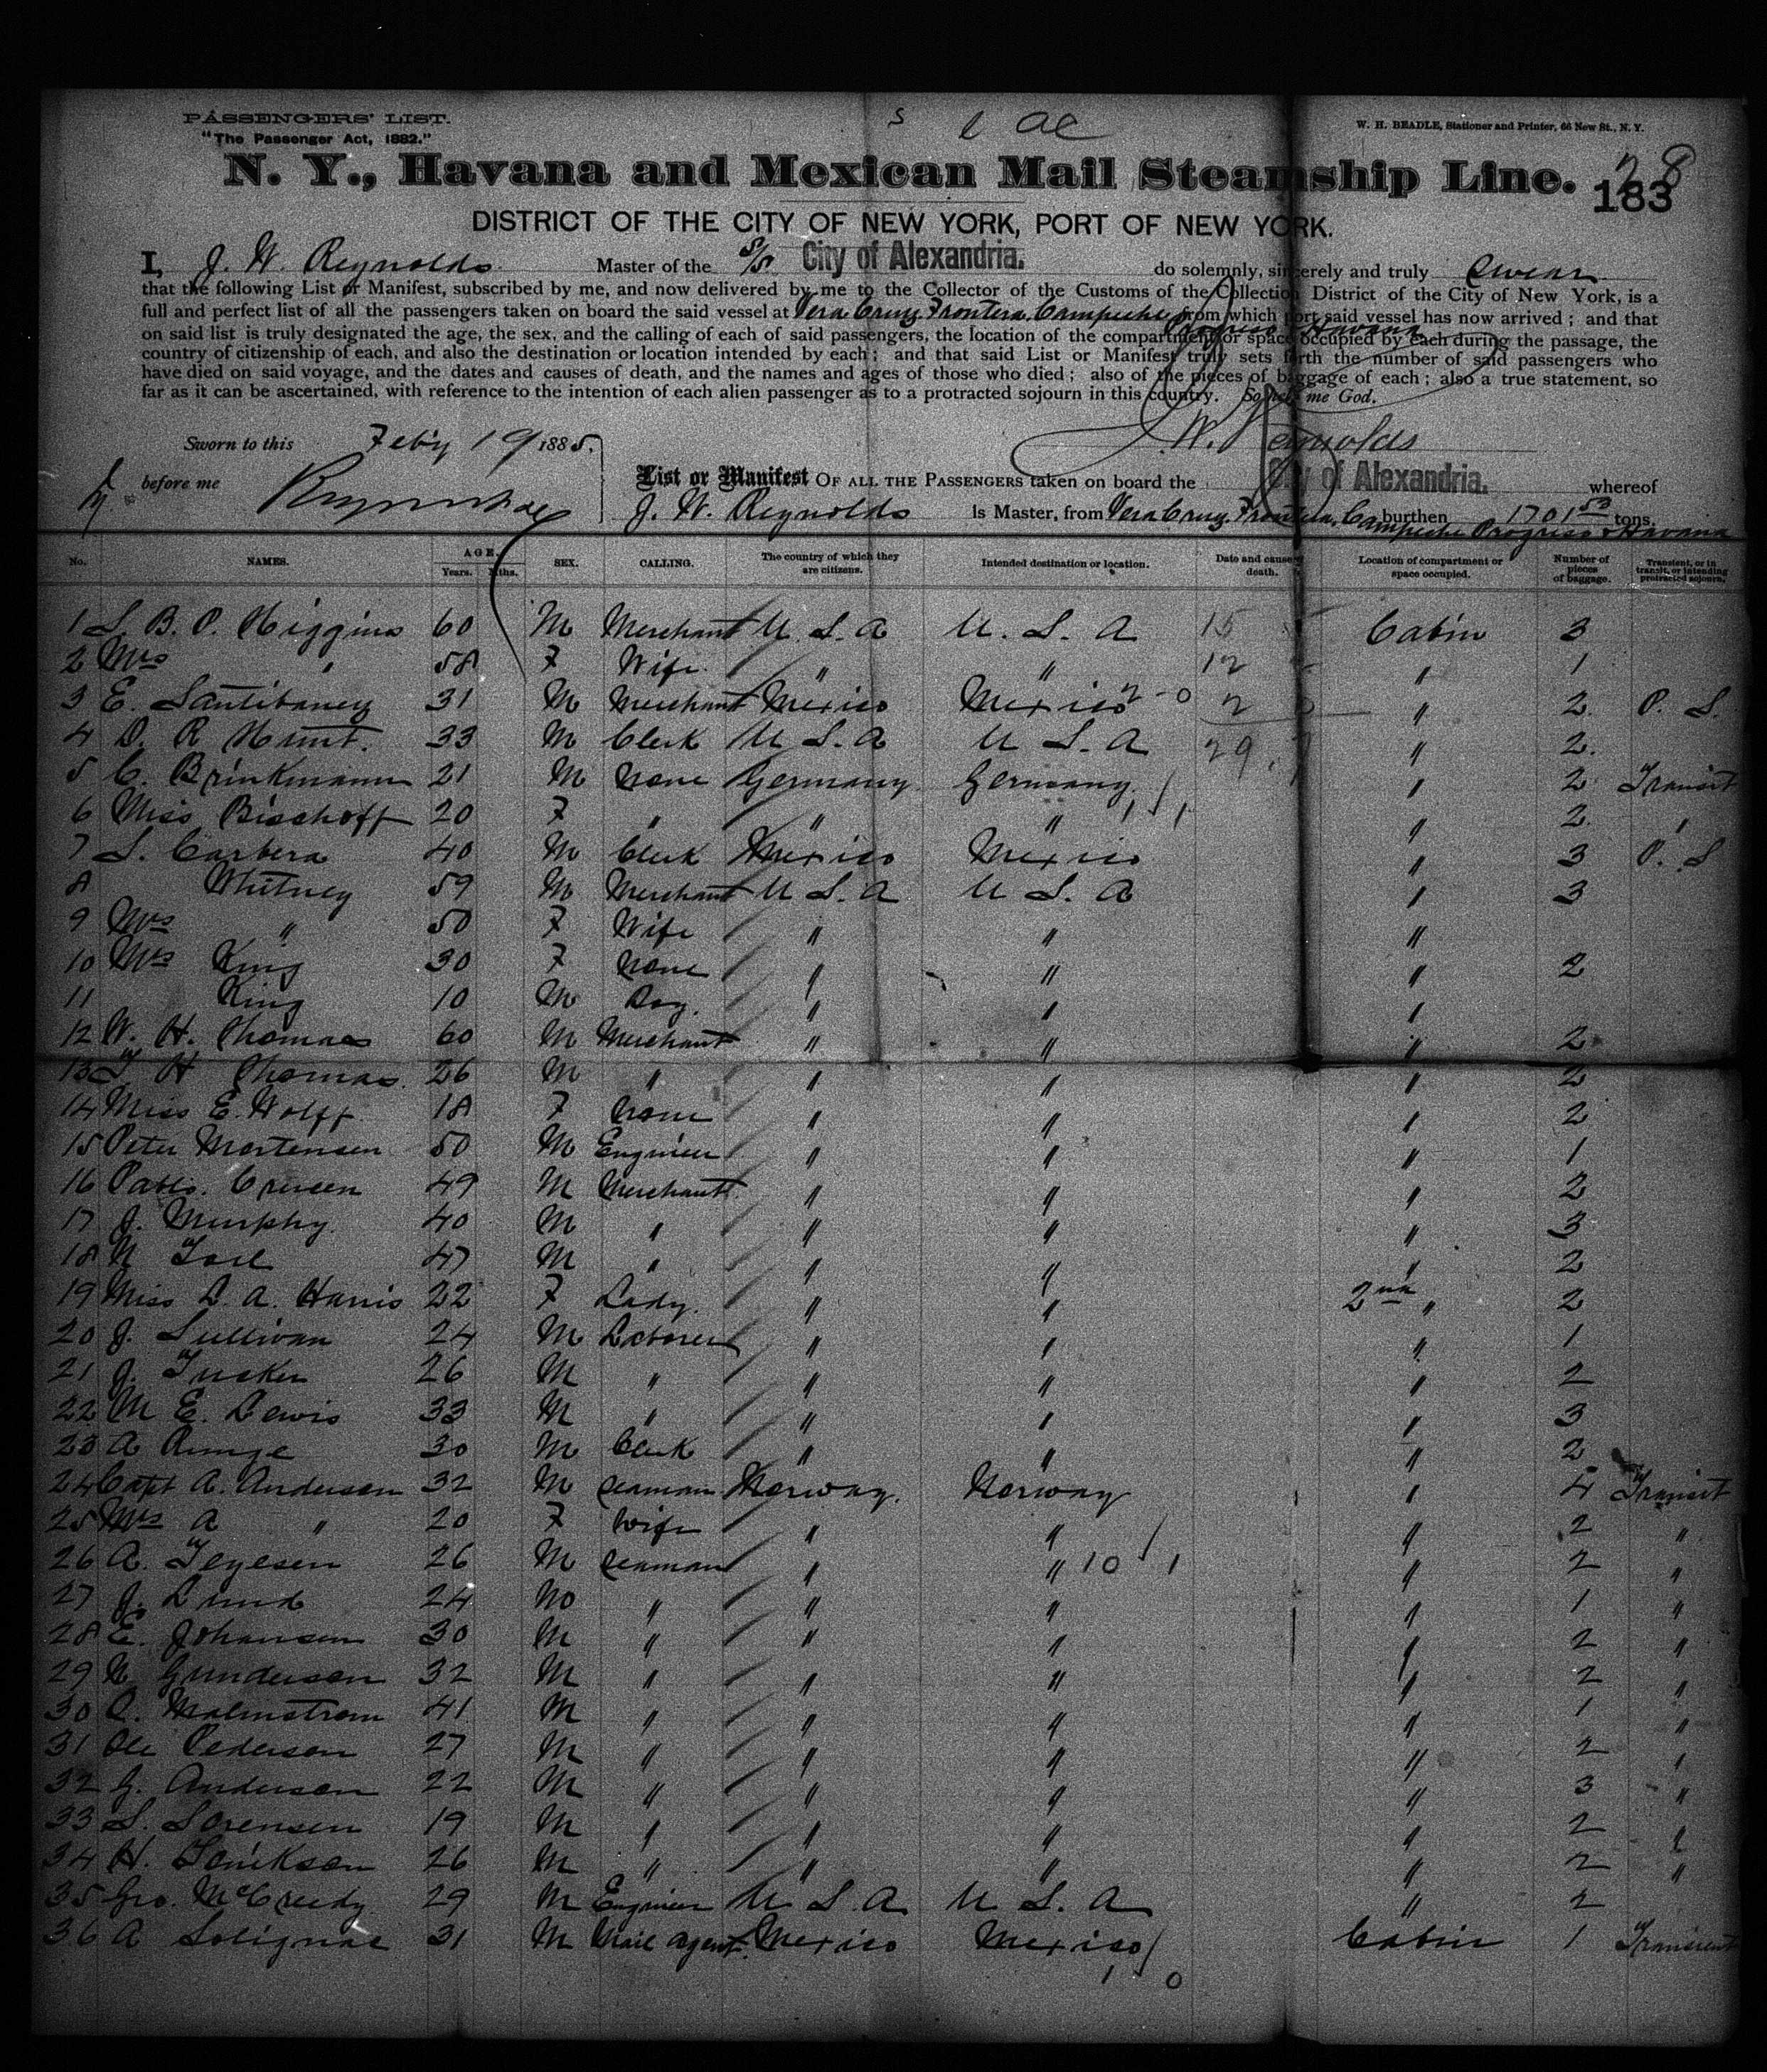 PASSENGERS' LIST.
"The Passenger Act, 1882."
W. H. BEADLE, Stationer and Printer, 66 New St., N. Y.
N. Y., Havana and Mexican Mail Steamship Line.
28
183
DISTRICT OF THE CITY OF NEW YORK, PORT OF NEW YORK.
I, J. W. Reynolds Master of the S/S City of Alexandria. do solemnly, sincerely and truly swear
that the following List or Manifest, subscribed by me, and now delivered by me to the Collector of the Customs of the Collection District of the City of New York, is a
full and perfect list of all the passengers taken on board the said vessel at Vera Cruz, Frontera, Campeche Progreso & Havana from which port said vessel has now arrived; and that
on said list is truly designated the age, the sex, and the calling of each of said passengers, the location of the compartment or space occupied by each during the passage, the
country of citizenship of each, and also the destination or location intended by each; and that said List or Manifest truly sets forth the number of said passengers who
have died on said voyage, and the dates and causes of death, and the names and ages of those who died; also of the pieces of baggage of each; also a true statement, so
far as it can be ascertained, with reference to the intention of each alien passenger as to a protracted sojourn in this country. So help me God.
Sworn to this Feby 19 1885. J. W. Reynolds
before me
List or Manifest OF ALL THE PASSENGERS taken on board the City of Alexandria. whereof
J. W. Reynolds is Master, from Vera Cruz, Frontera, Campeche Progreso & Havana burthen 1701 53 tons.
No. NAMES. AGE. Years. Mths. SEX. CALLING. The country of which they are citizens. Intended destination or location. Date and cause of death. Location of compartment or space occupied. Number of pieces of baggage. Transient, or in transit, or intending protracted sojourn.
1 S. B. P. Higgins 60 M Merchant U. S. A U. S. A 15 Cabin 3
2 Mrs " 58 F Wife " " 12 " 1
3 E. Santibanez 31 M Merchant Mexico Mexico 2-0 2 " 2 P. S.
4 D. R Hunt. 33 M Clerk U S. A U S. A 29 " 2.
5 C. Brinkmann 21 M None Germany Germany " 2 Transit
6 Miss Bischoff 20 F " " " 1/1 " 2. "
7 S. Carbera 40 M Clerk Mexico Mexico " 3 P. S
8 Whitney 59 M Merchant U S. A U S. A " 3
9 Mrs " 50 F Wife " " "
10 Mrs King 30 F None " " " 2
11 King 10 M Boy " " "
12 W. H. Thomas 60 M Merchant " " " 2
13 T H Thomas. 26 M " " " " 2
14 Miss E. Wolff 18 F None " " " 2
15 Peter Mortensen 50 M Engineer " " " 1
16 49 M Merchant " " " 2
17 J. Murphy. 40 M " " " " 3
18 N 47 M " " " " 2
19 Miss L. A. Harris 22 F Lady. " " 2nd " 2
20 J. Sullivan 24 M Laborer " " " 1
21 J. Tucker 26 M " " " " 2
22 M E. Lewis 33 M " " " " 3
23 A Runge 30 M Clerk " " " 2
24 Capt A. Anderson 32 M Seaman Norway. Norway " 4 Transit
25 Mrs A " 20 F Wife " " " 2 "
26 A. Tegesen 26 M Seaman " " 10/1 " 2 "
27 J. Lund 24 M " " " " 1 "
28 E. Johansen 30 M " " " " 2 "
29 N Gunderson 32 M " " " " 2 "
30 C. Malmstrom 41 M " " " " 1 "
31 Ole Pederson 27 M " " " " 2 "
32 G. Anderson 22 M " " " " 3 "
33 S. Sorensen 19 M " " " " 2 "
34 H. 26 M " " " " 2 "
35 Geo. McCreedy 29 M Engineer U S. A U S. A " 2
36 A Solignac 31 M Mail agent. Mexico Mexico Cabin 1 Transient
1/0